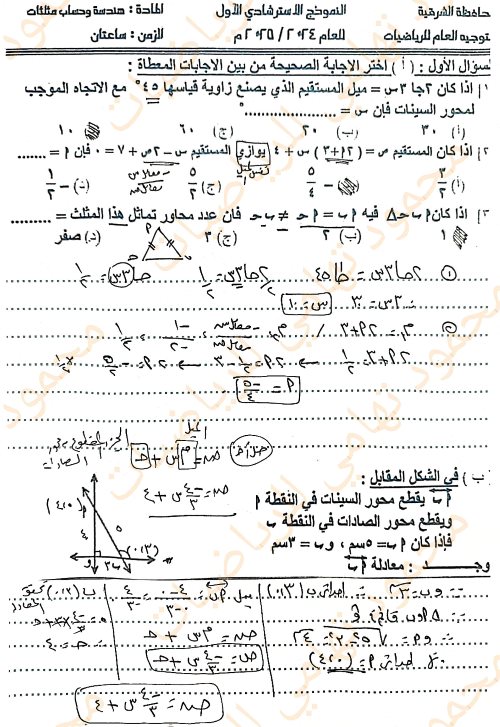 محافظة الشرقية
النموذج الاسترشادي الأول
المادة : هندسة وحساب مثلثات
توجيه العام للرياضيات
للعام ٢٠٢٤ / ٢٠٢٥ م
الزمن: ساعتان
لسؤال الأول : ( أ ) اختر الاجابة الصحيحة من بين الاجابات المعطاة :
١] اذا كان ٢جا ٣س = ميل المستقيم الذي يصنع زاوية قياسها ٤٥° مع الاتجاه الموجب
لمحور السينات فإن س = ........
(أ) ٣٠ (ب) ٢٠ (ج) ٦٠ ١٠
٢] اذا كان المستقيم ص = (٢م+٣) س + ٤ يوازي المستقيم س – ٢ص + ٧ = ٠ فإن م = ..........
(أ) ٣/٢ – ٥/٤ (ج) ٥/٢ (د) – ١/٢
٣] اذا كان △ م ب ح فيه م ب = م ح ≠ ب ح فان عدد محاور تماثل هذا المثلث = ..........
١ (ب) ٢ (ج) ٣ (د) صفر
① ٢جا٣س = ظا٤٥
٢جا٣س/٢ = ١/٢
جا(٣س) = ١/٢
٣س = ٣٠
س = ١٠
② م١ = ٢م+٣ / م٢ = -معامل س / معامل ص = -١/-٢ = ١/٢
٢م+٣ = ١/٢ ← ٢م = ١/٢ - ٣ ← ٢م = -٥/٢
م = -٥/٤
الميل
ص = م س + ح
ب ) في الشكل المقابل :
م ب يقطع محور السينات في النقطة م
ويقطع محور الصادات في النقطة ب
فإذا كان م ب = ٥سم ، و ب = ٣سم
وجــــد : معادلة م ب
ص = -٤/٣ س + ٤
∵ و ب = ٣ ∴ احداثي ب (٣،٠)
ص = م س + ح
ص = -٤/٣ س + ح
∴ ح = ٤
∴ احداثي م = (٤،٠)
ص = -٤/٣ س + ٤
محمود تهامي للرياضيات